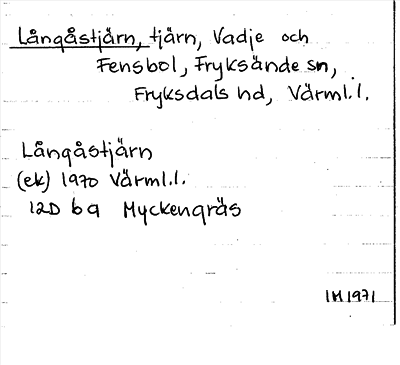 Långåstjärn, tjärn, Vadje och
Fensbol, Fryksände sn,
Fryksdals hd, Värml.l.
Långåstjärn
(ek) 1970 Värml.l.
12D 6a Myckengräs
IM 1971